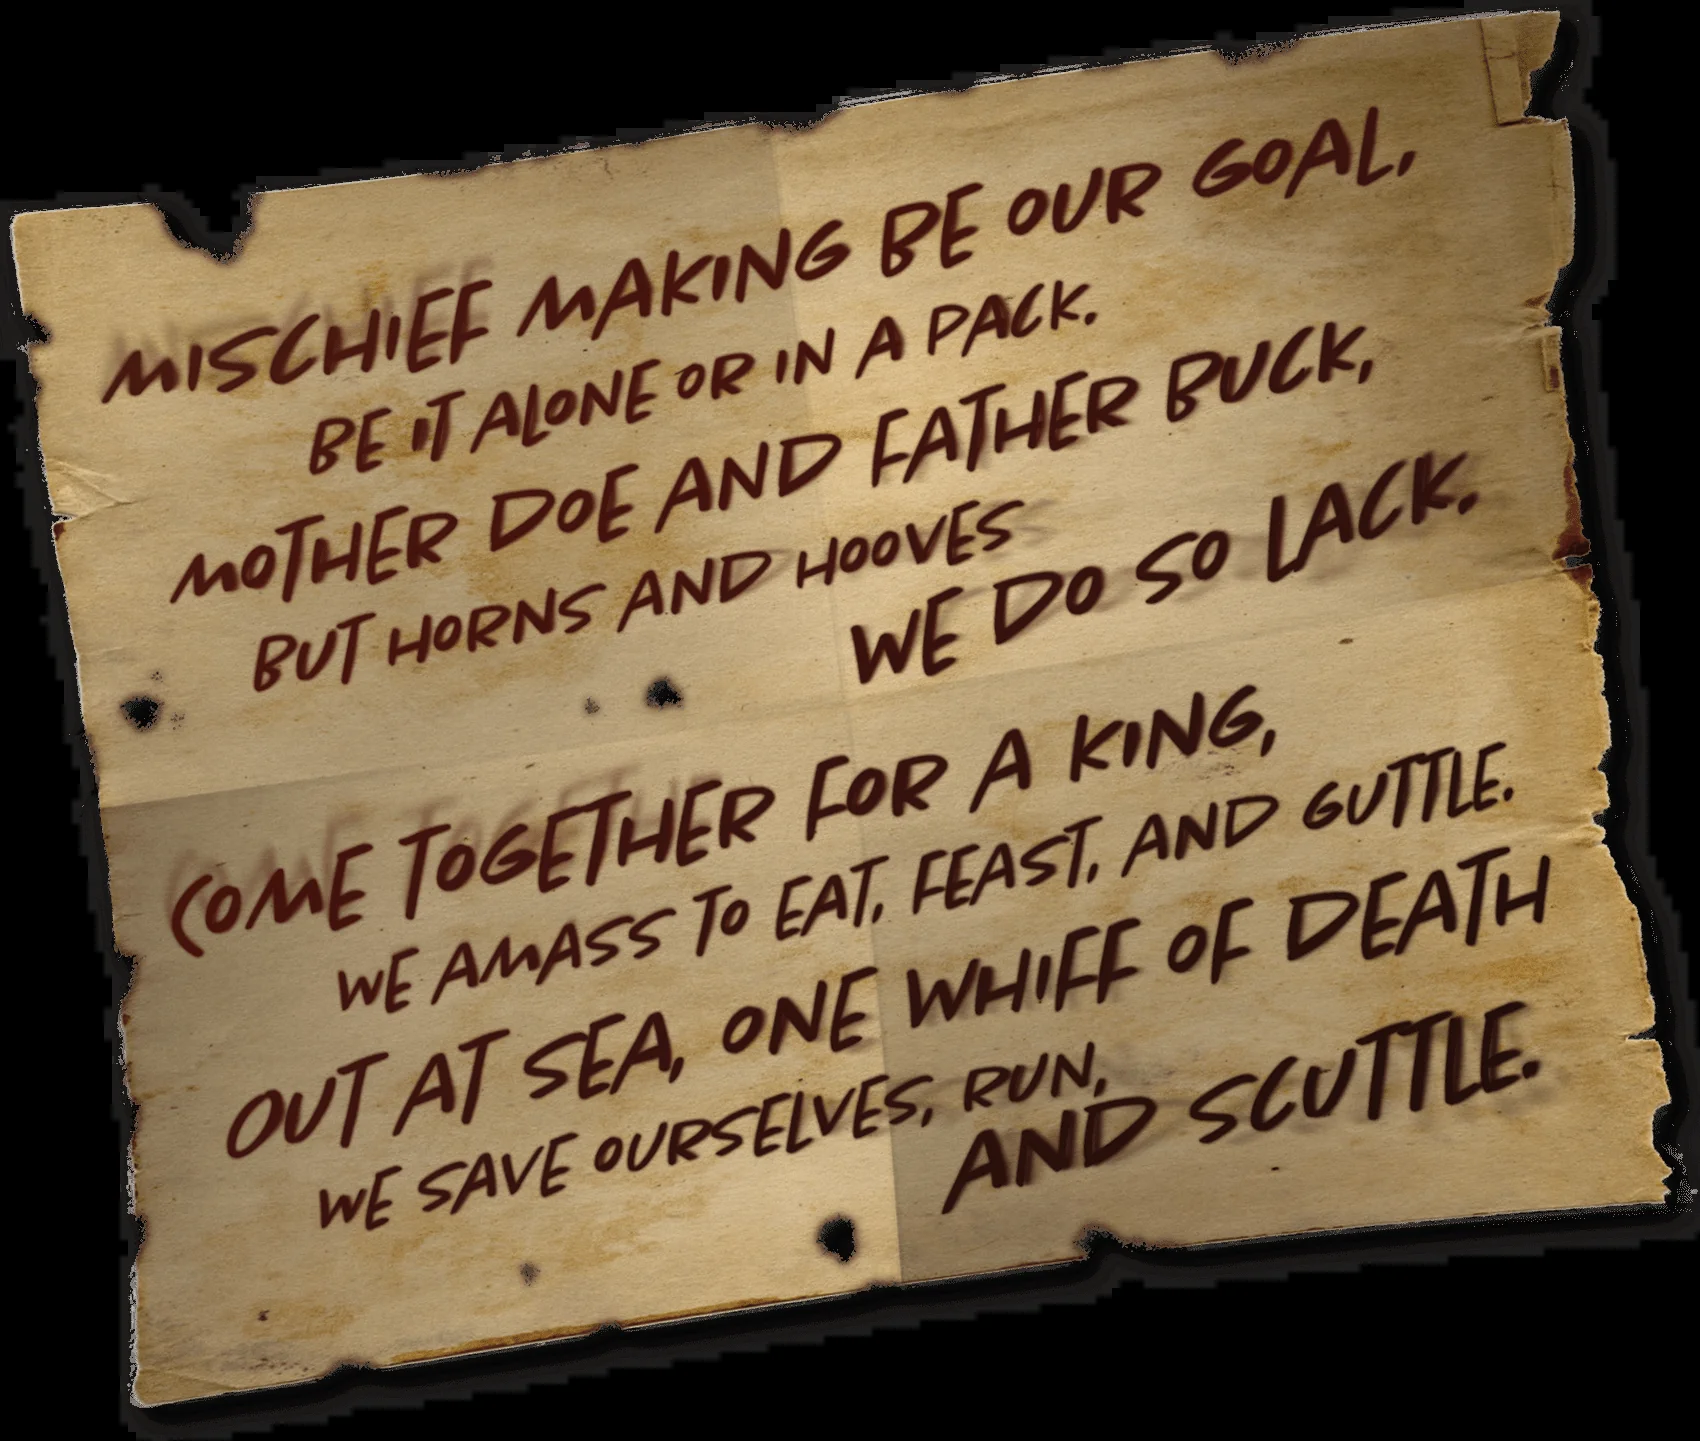 MISCHIEF MAKING BE OUR GOAL,
BE IT ALONE OR IN A PACK.
MOTHER DOE AND FATHER BUCK,
BUT HORNS AND HOOVES
WE DO SO LACK.
COME TOGETHER FOR A KING,
WE AMASS TO EAT, FEAST, AND GUTTLE.
OUT AT SEA, ONE WHIFF OF DEATH
WE SAVE OURSELVES, RUN,
AND SCUTTLE.